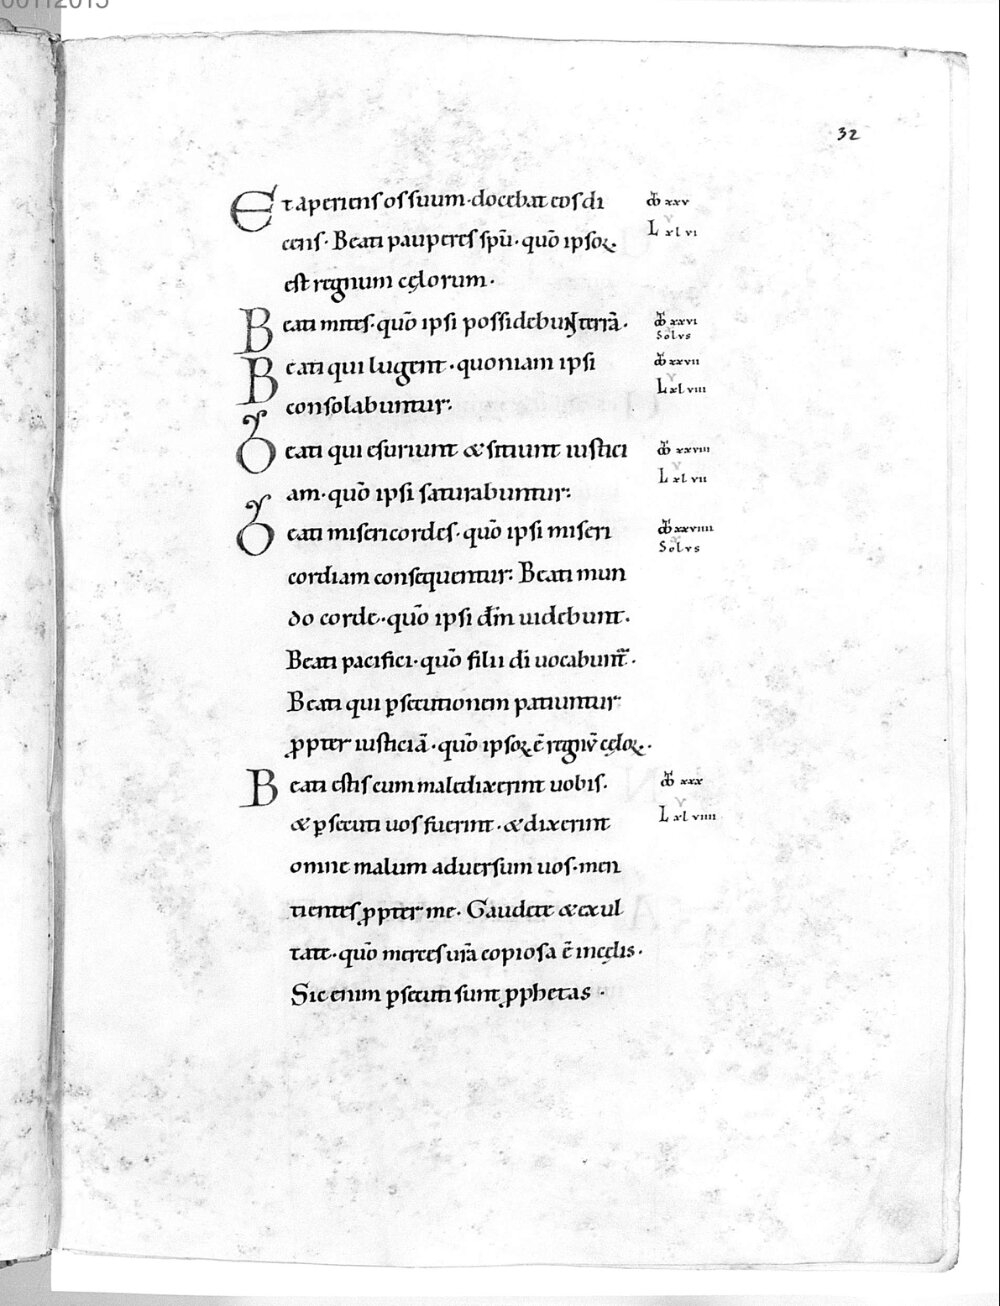 00112015
32
Et aperiens os suum · docebat eos di
cens · Beati pauperes spū · quō ipsoꝝ
est regnum cęlorum ·
Beati mites · quō ipsi possidebunt terrā ·
Beati qui lugent · quoniam ipsi
consolabuntur:
Beati qui esuriunt & sitiunt iustici
am · quō ipsi saturabuntur:
Beati misericordes · quō ipsi miseri
cordiam consequentur: Beati mun
do corde · quō ipsi dm̄ uidebunt ·
Beati pacifici · quō filii di uocabunt᷑ ·
Beati qui ꝑsecutionem patiuntur
ꝓpter iusticiā · quō ipsoꝝ ē regnū cęloꝝ ·
Beati estis cum maledixerint uobis ·
& ꝑsecuti uos fuerint · & dixerint
omne malum aduersum uos · men
tientes ꝓpter me · Gaudete & exul
tate · quō merces ur̄a copiosa ē in cęlis ·
Sic enim ꝑsecuti sunt ꝓphetas ·
xxv
L xlvi
xxvi
Solus
xxvii
L xlviii
xxviii
L xlvii
xxviiii
Solus
xxx
L xlviiii